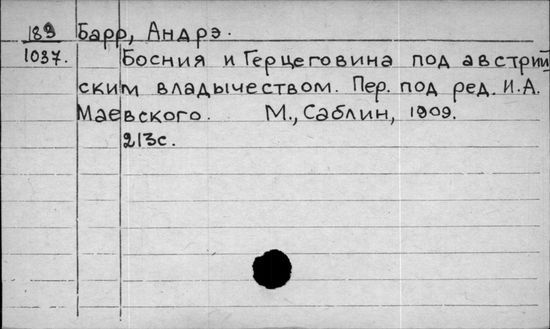 189 Барр, Андрэ.
1037. Босния и Герцеговина под австрий
ским владычеством. Пер. под ред. И.А.
Маевского. М., Саблин, 1909.
213с.